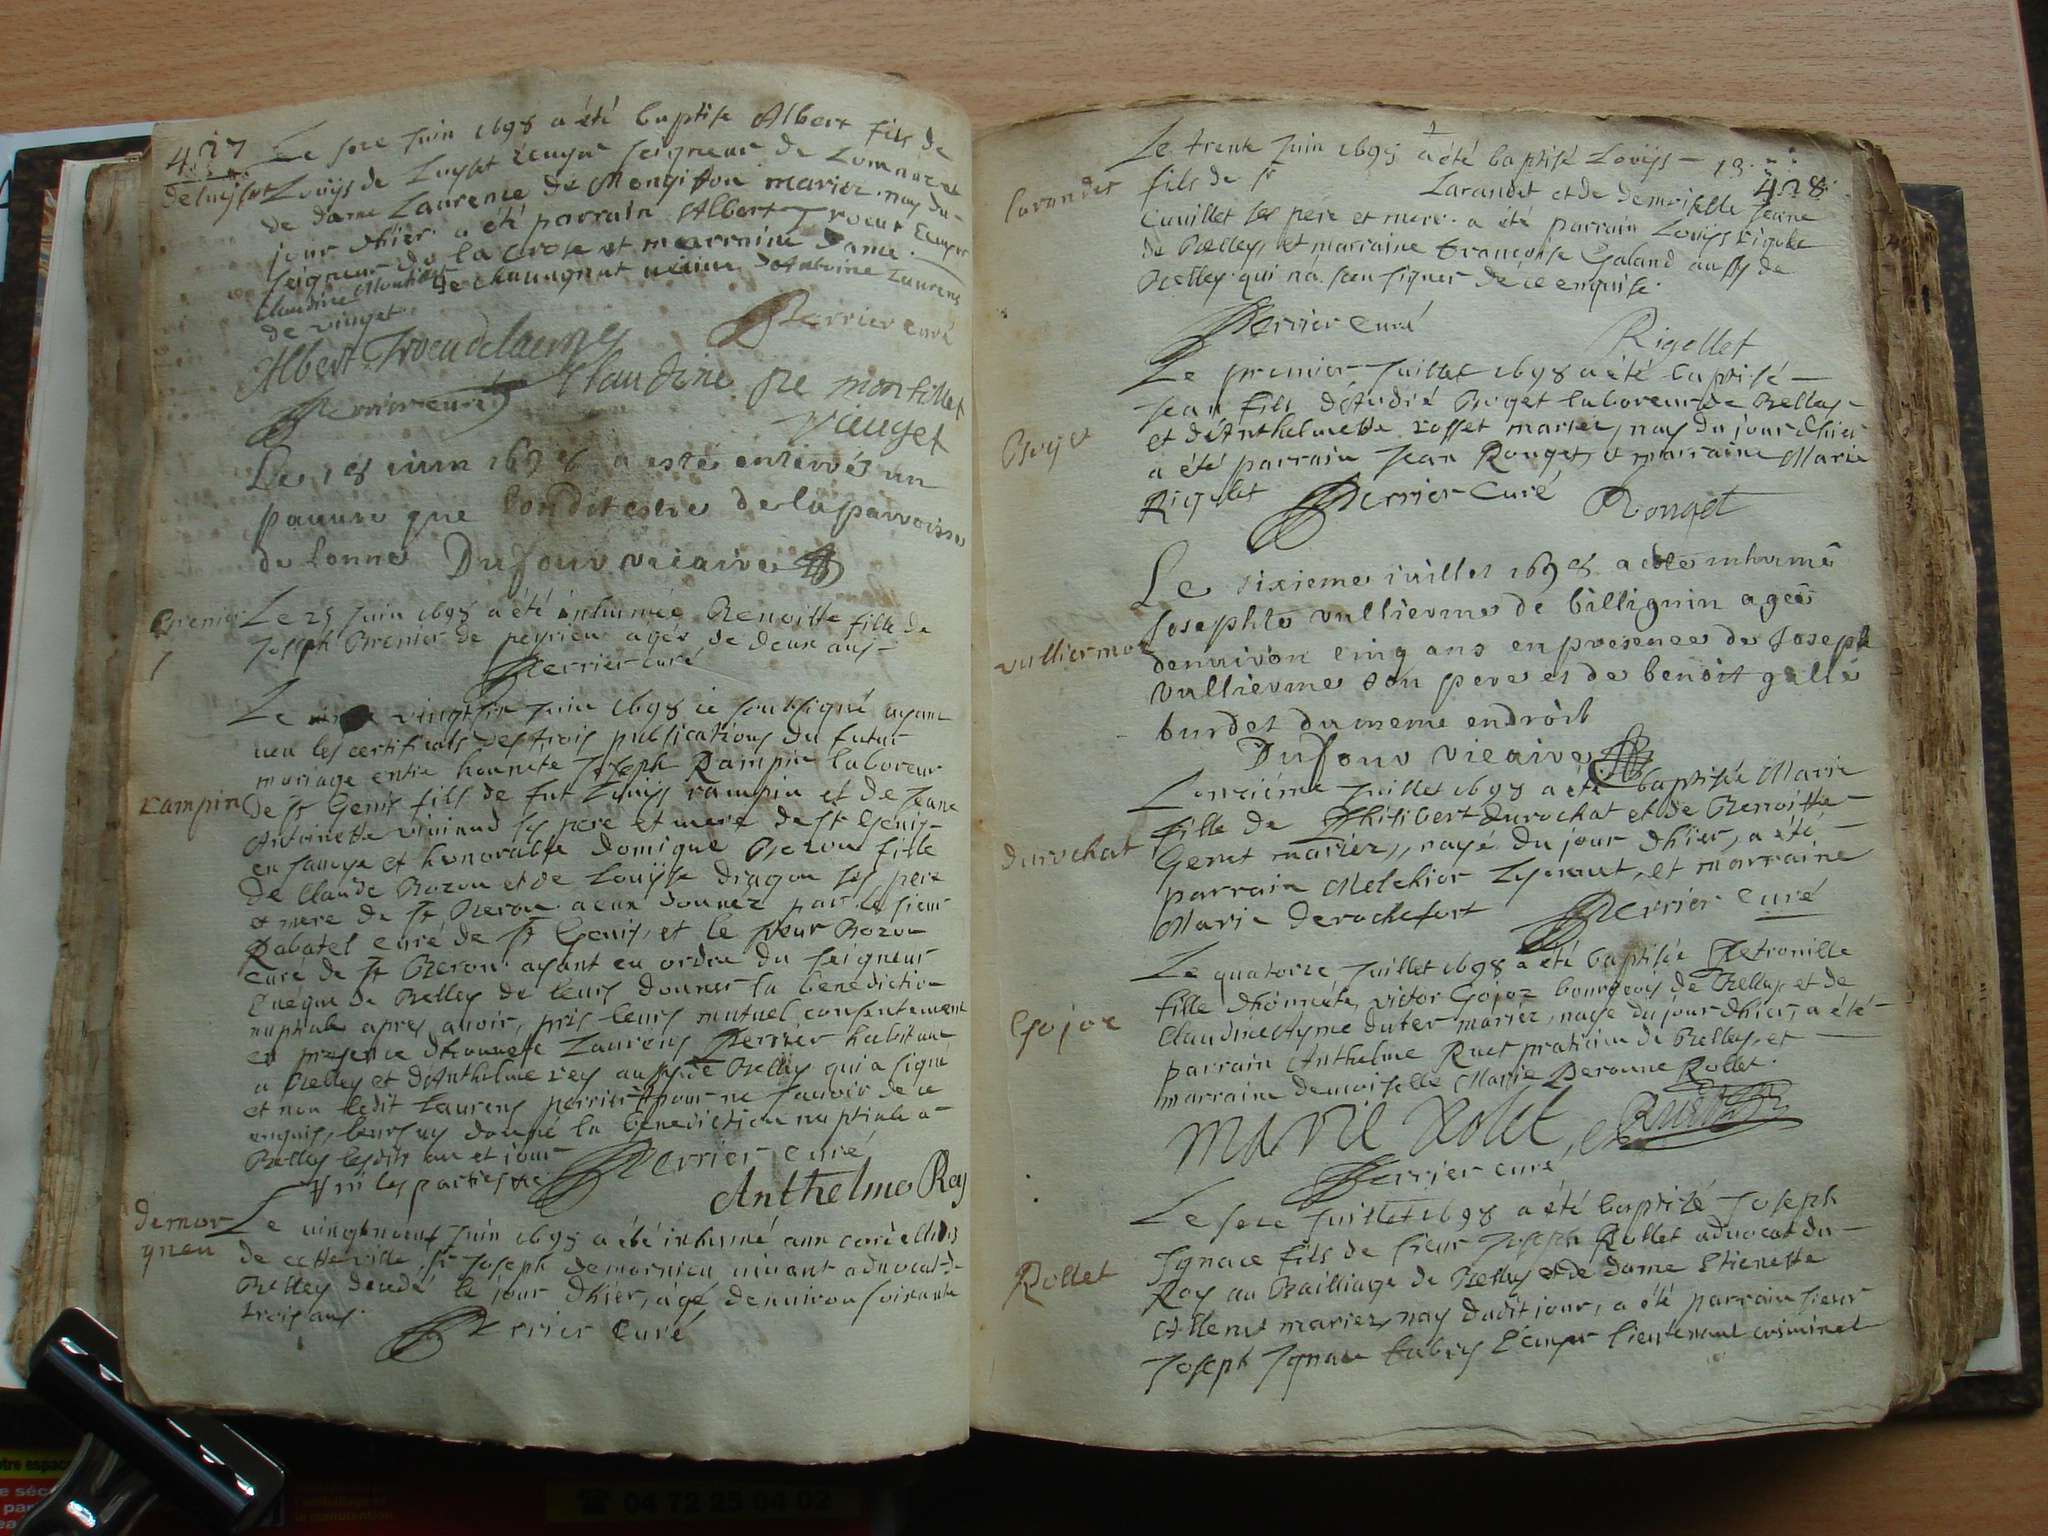 427
Le seze Juin 1698 a été baptise Albert fils de
deluyset Louys de Luyset Ecuyer seigneur de Lomnaz et
de dame Laurence de Mongiffon mariez, nay du
jour d'hier a été parrain Albert Trocu Ecuyer
seigneur de la Crose et marraine dame
Claudine Montillet de
de vinget
Perrier curé
Albert Trocu delacrose
Claudine De montillet
Perrier curé
vinget
Le 18 iuin 1698 a esté enterrés un
pauure que londit estre de la parroisse
de lonne Dufour vicaire
Grenier Le 25 Juin 1698 a été inhumée Benoitte fille de
Joseph Grenier de peyrieu agée de deux ans
Perrier curé
Le vingtsix Juin 1698 ie soussigné ayant
ueu les certificats des trois publications du futur
mariage entre honnete Joseph Rampin laboreur
rampin de st Genis fils de fut Louys rampin et de Jeane
Antoinette uiuiand ses pere et mere de st Genis
en sauoye et honorable domique Bozon fille
de Claude Bozon et de Louyse dragon ses pere
et mere de st Beron a eux donnez par les sieur
Rabatel curé de st Genis, et le sieur Bozon
curé de st Beron ayant eu ordre du seigneur
Euéque de Belley de leurs donner la benediction
nuptiale apres auoir pris leurs mutuel consentement
en presence d'honnete Laurens Perrier habitant
a Belley et d'Anthelme rey aussy de Belley qui a signe
et non ledit Laurens perrier pour ne sauoir de ce
enquis, leurs ay donné la benediction nuptiale a
Belley lesdits an et jour
Perrier curé
Anthelme Rey
demor
gneu
Le vingtneuf Juin 1698 a été inhumé aux cordelliers
de cette ville, sr Joseph demornieu uiuant aduocat
Belley decedé le jour d'hier, agé denuiron soixante
trois ans.
Perrier Curé
Le trente Juin 1698 a été baptisé Louys
428
larandet fils de sr Larandet et de demoiselle Jeane
Cuuillet ses pere et mere a été parrain Louys rigolet
de Belley, et marraine Françoise Galand aussy de
Belley qui na sceu signer de ce enquise.
Perrier Curé
Rigollet
Le premier Juillet 1698 a été baptisé
Jean fils d'André Boget laboreur de Belley
Boget et d'Anthelmette rosset mariez, nay du jour d'hier
a été parrain Jean Rouget, et marraine Marie
Rigolet Perrier Curé Rouget
Le sixieme iuillet 1698 a este inhumé
Josephte vullierme de billignin agée
vulliermoz denuiron cinq ans en presence de Joseph
vullierme son pere et de benoit gallé
burdet du meme endroit
Dufour vicaire
Lonziéme Juillet 1698 a été baptisée Marie
fille de Philibert durochat et de Benoitte
durochat Genet mariez, nayé du jour d'hier, a été
parrain Melchior, et marraine
Marie derochefort Perrier Curé
Le quatorze Juillet 1698 a été baptisée Petronille
fille d'honnéte victor Gojoz bourgeois de Belley et de
Gojoz Claudine Ayme duter mariez, nayé du jour d'hier, a été
parrain Anthelme Ruet praticien de Belley, et
marraine demoiselle Marie Peronne Rollet.
Marie Rolet,
Perrier curé
Le seze Juillet 1698 a été baptizé Joseph
Rollet Ignace fils de sieur Joseph Rollet aduocat du
Roy au Bailliage de Belley et de dame Etienette
mariez, nay dudit jour, a été parrain sieur
Joseph Ignace fabry Ecuyer lieutenant criminel
04 72 85 04 02